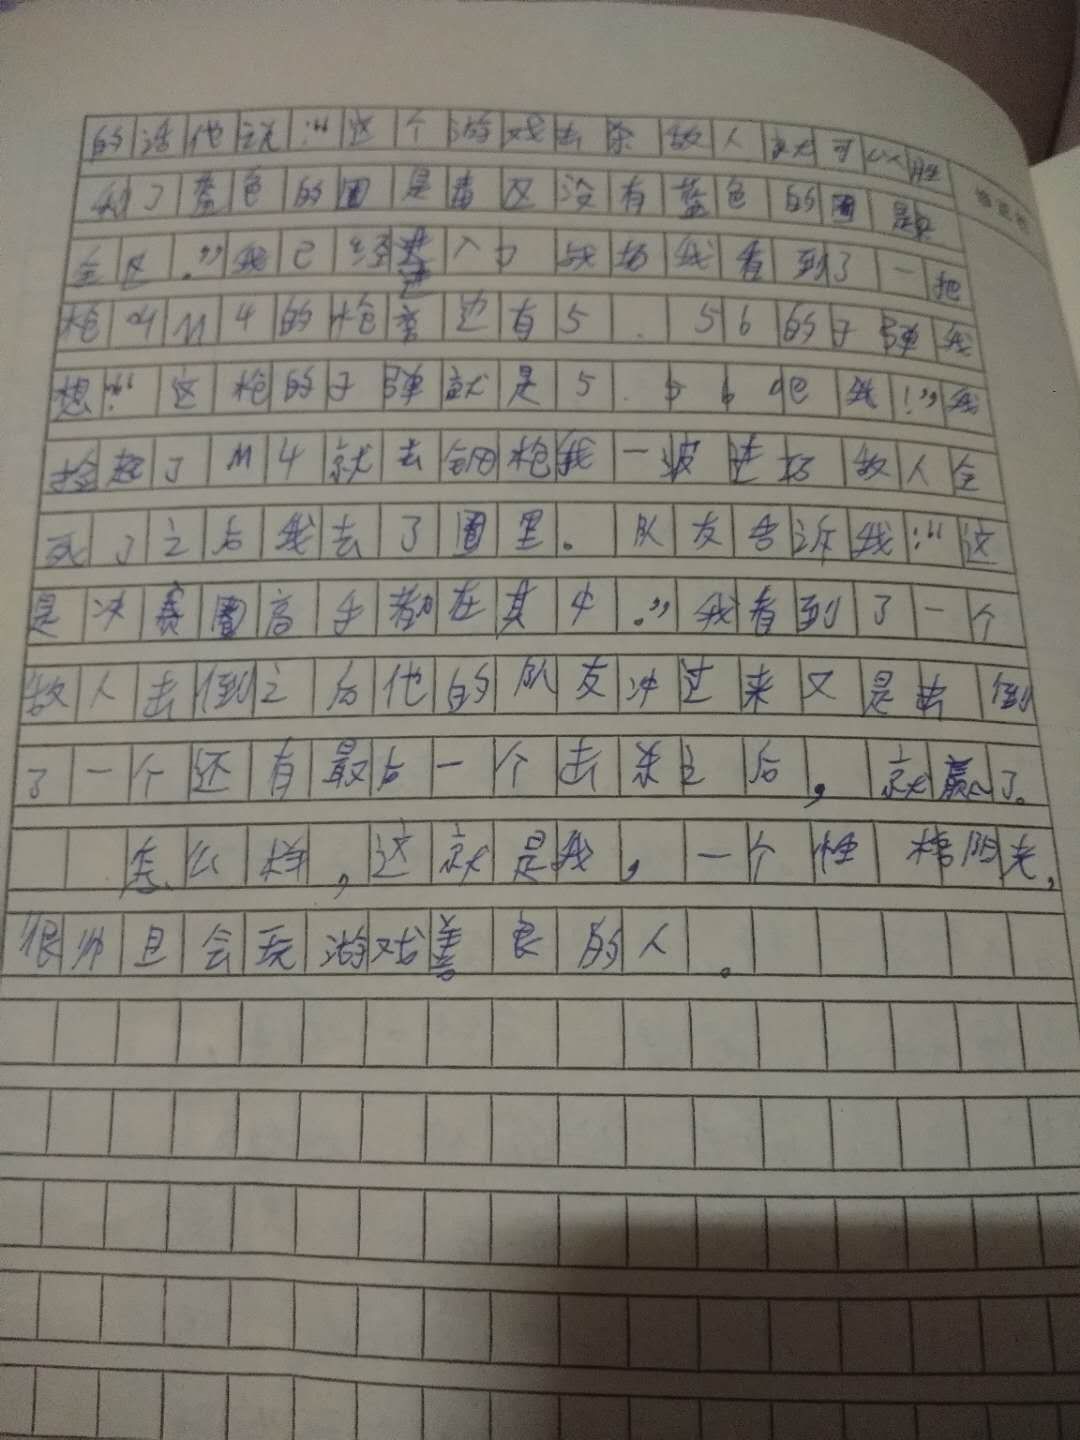 的话他说:“这个游戏击杀敌人就可以胜
利了蓝色的圈是毒区没有蓝色的圈是安
全区.”我已经进入了战场我看到了一把
枪叫M4的枪旁边有5.56的子弹我
想:“这枪的子弹就是5.56吧我!”我
捡起了M4就去钢枪我一波进攻敌人全
灭了之后我去了圈里。队友告诉我:“这
是决赛圈高手都在其中.”我看到了一个
敌人击倒之后他的队友冲过来又是击倒
了一个还有最后一个击杀之后,就赢了。
怎么样,这就是我,一个性格阳光,
很帅且会玩游戏善良的人。